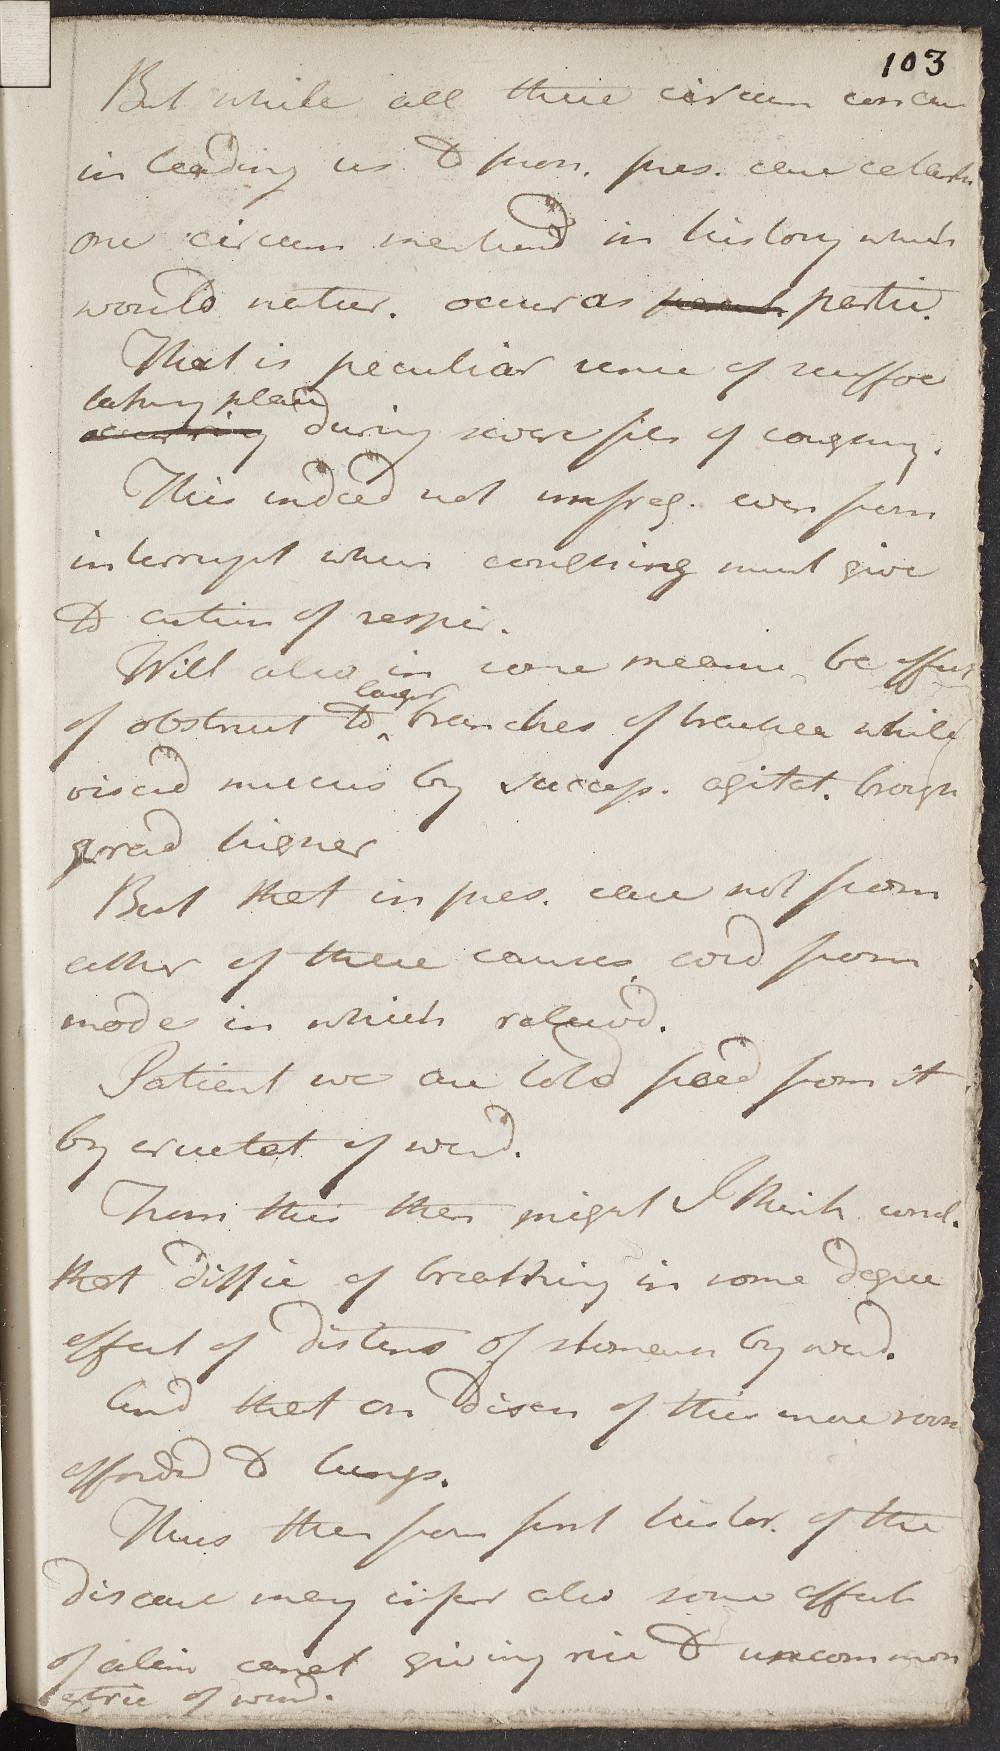 103
But while all these circum concur
in leading us to pron. pres. case
one circum mentiond in history which
would natur. occur as partic.
That is peculiar sense of suffoc
taking place
occurring during severe fits of coughing.
This indeed not unfreq. even from
interrupt when coughing must give
to action of respir.
Will also in some measure be effect
of obstruct to larger branches of trachea while
viscid mucus by success. agitat. brough
grad higher
But that in pres. case not from
either of these causes concd from
modes in which relievd.
Patient we are told freed from it
by eructat of wind.
From this then might I think concl.
that diffic of breathing in some degree
effect of distens of stomach by wind.
And that on disch of this more room
affordd to lungs.
Thus then from first histor. of the
disease may infer also some affect
of alim canal giving rise to uncommon
extric of wind.